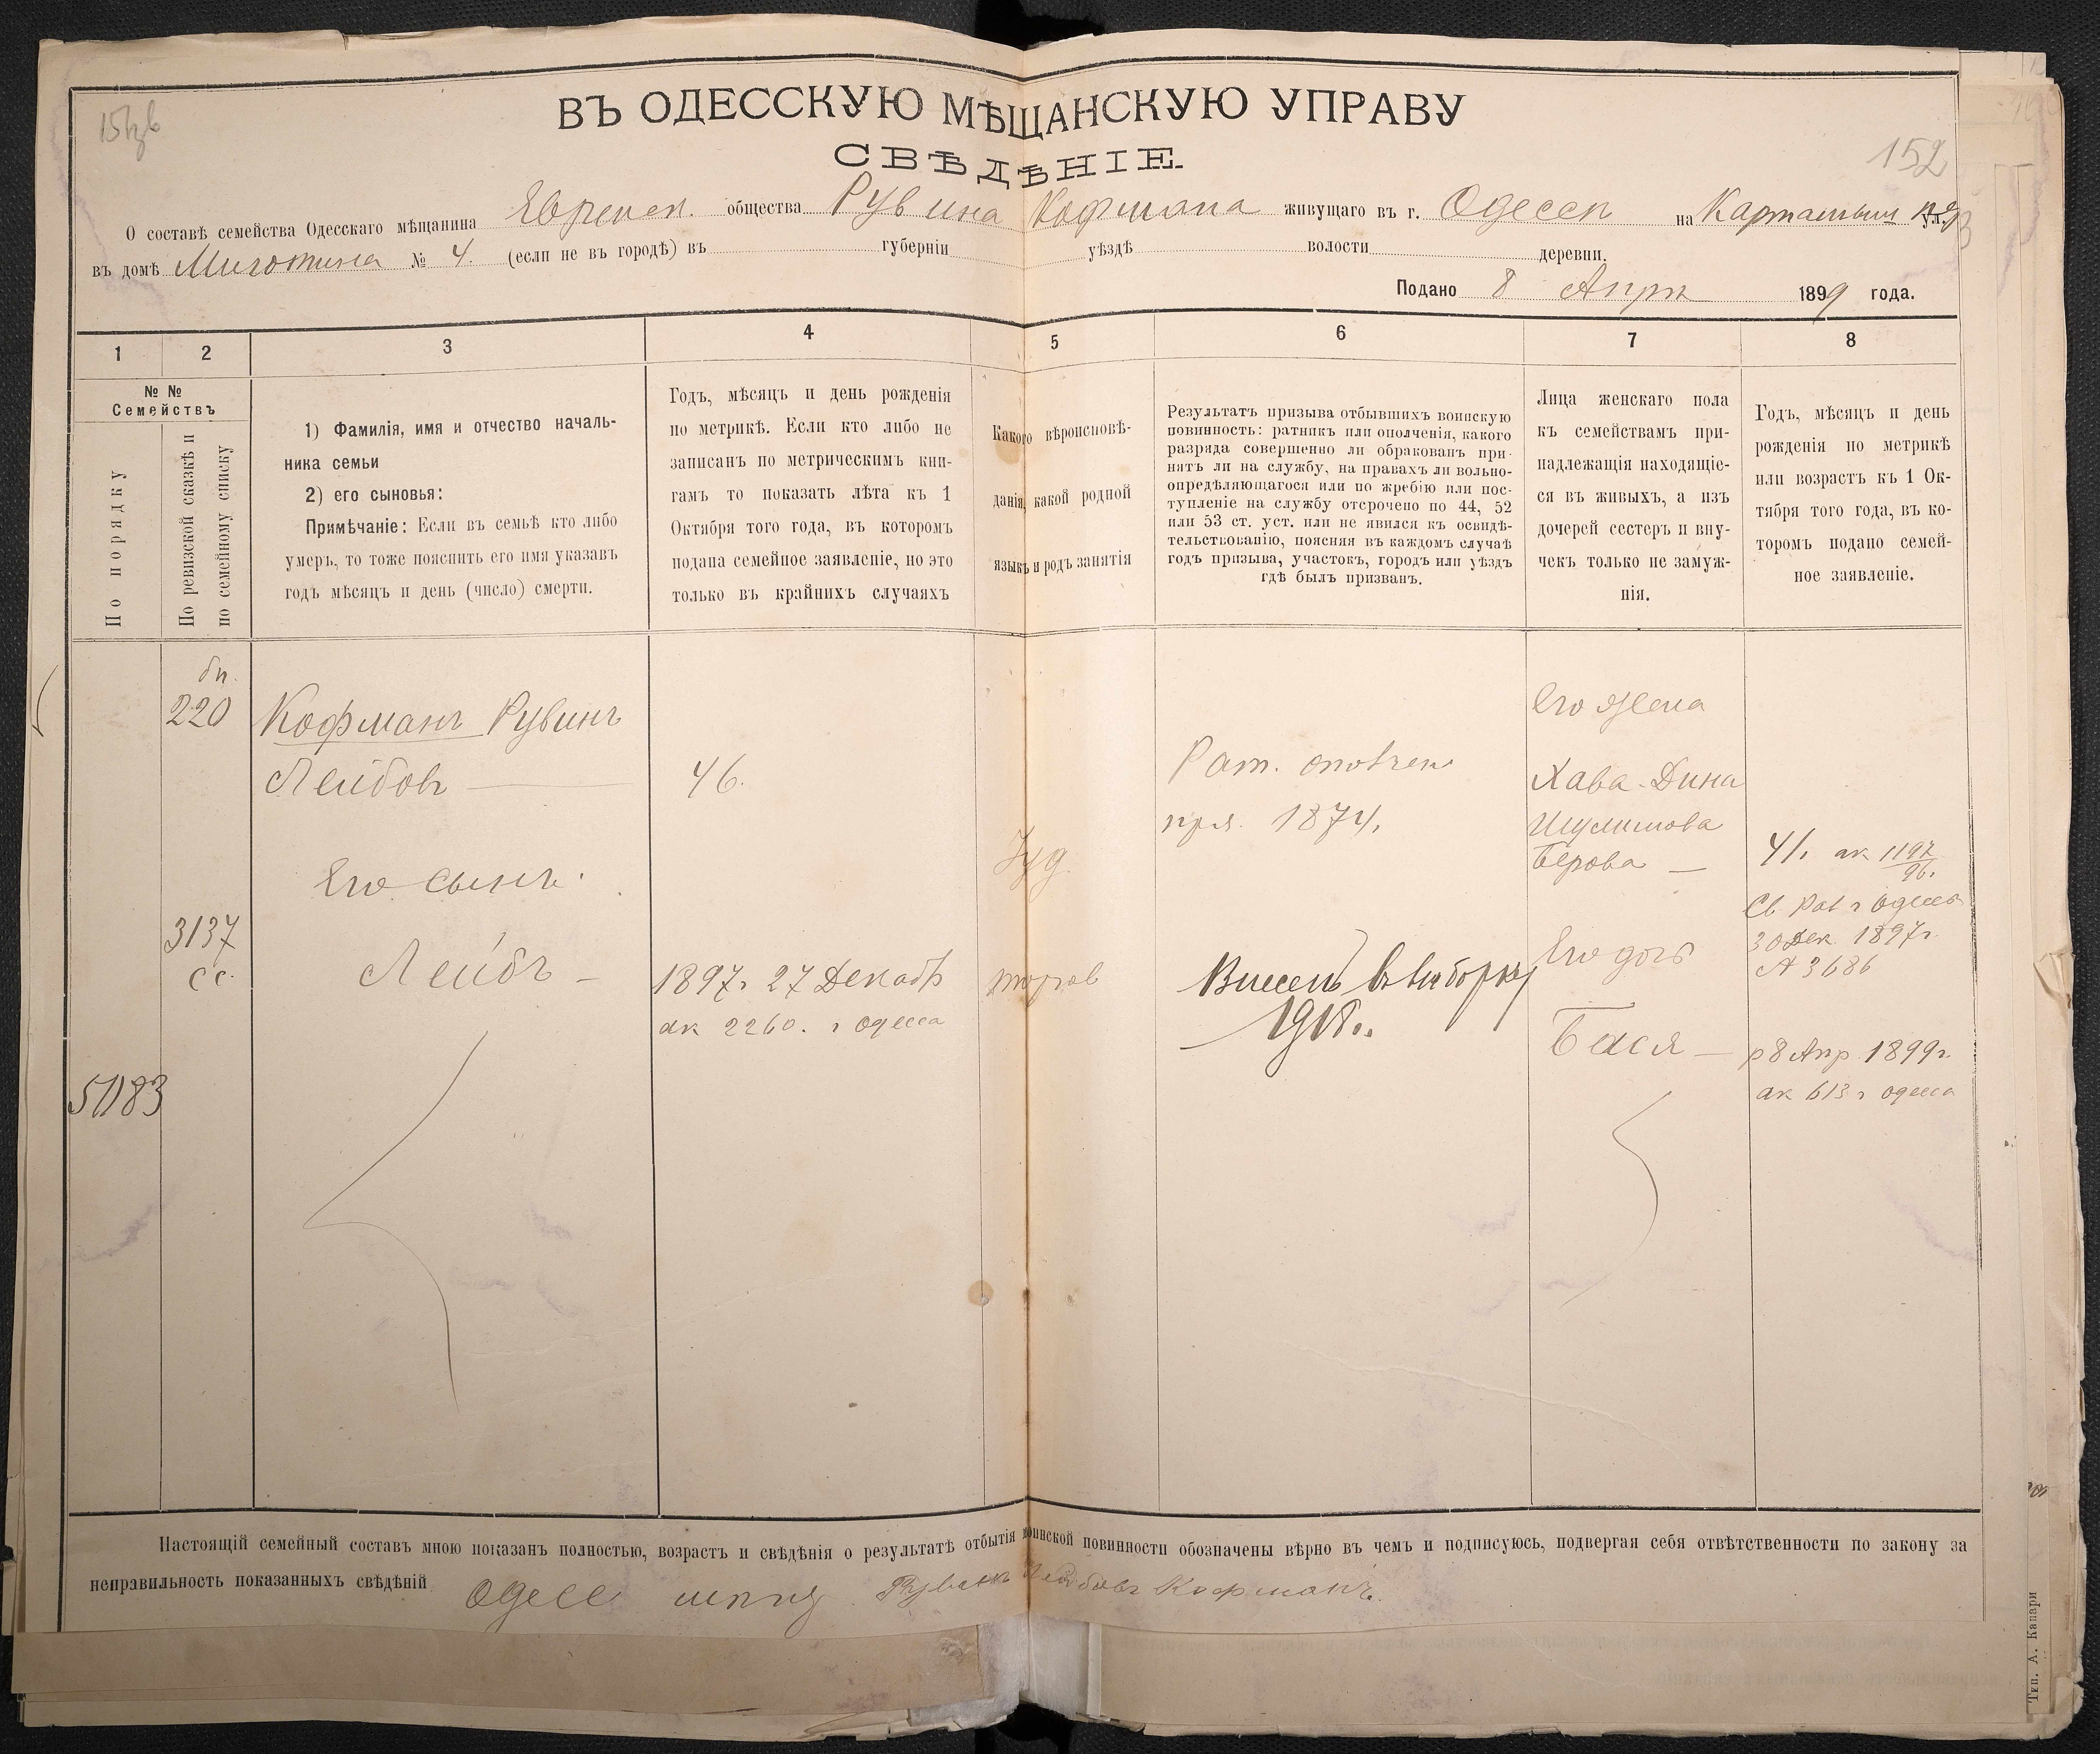 152
ВЪ ОДЕССКУЮ МѢЩАНСКУЮ УПРАВУ
СВѢДѢНІЕ
О составѣ семейства Одесскаго мѣщанина Еврейск. общества Рувина Кофмана живущаго въ г. Одессѣ на ул.
въ домѣ № 4. (если не въ городѣ) въ губерніи уѣздѣ волости деревни.
Подано 8 Апрѣ 1899 года.
1 2 3 4 5 6 7 8
№ № Семействъ
По порядку
По ревизской сказкѣ и по семейному списку
1) Фамилія, имя и отчество началь-
ника семьи
2) его сыновья:
Примѣчаніе: Если въ семьѣ кто либо
умеръ, то тоже пояснить его имя указавъ
годъ мѣсяцъ и день (число) смерти.
Годъ, мѣсяцъ и день рожденія
по метрикѣ. Если кто либо не
записанъ по метрическимъ кни-
гамъ то показать лѣта къ 1
Октября того года, въ которомъ
подана семейное заявленіе, но это
только въ крайнихъ случаяхъ
Какого вѣроисповѣ-
данія, какой родной
языкъ и родъ занятія
Результатъ призыва отбывшихъ воинскую
повинность: ратникъ или ополченія, какого
разряда совершенно ли обракованъ при-
нятъ ли на службу, на правахъ ли вольно-
опредѣляющагося или по жребію или пос-
тупленіе на службу отсрочено по 44, 52
или 53 ст. уст. или не явился къ освидѣ-
тельствованію, поясняя въ каждомъ случаѣ
годъ призыва, участокъ, городъ или уѣздъ
гдѣ былъ призванъ.
Лица женскаго пола
къ семействамъ при-
надлежащія находящіе-
ся въ живыхъ, а изъ
дочерей сестеръ и вну-
чекъ только не замуж-
нія.
Годъ, мѣсяцъ и день
рожденія по метрикѣ
или возрастъ къ 1 Ок-
тября того года, въ ко-
торомъ подано семей-
ное заявленіе.
220
Кофманъ Рувинъ
Лейбовъ
46.
Рат. ополчен
1874.
Его жена
Хава-Дина
Шулимова
Берова
41. ак 1197/96.
Его сынъ.
Іуд.
3137
сс.
Лейбъ
1897г 27 Декабр
ак 2260. г Одесса
торгов
Внесенъ въ выборку
1918г.
Св Рав г Одессы
30 Дек. 1897г.
№ 3686
Его дочь
Бася
р 8 Апр 1899г.
ак 613 г Одесса
51183
Настоящій семейный составъ мною показанъ полностью, возрастъ и свѣдѣнія о результатѣ отбытія воинской повинности обозначены вѣрно въ чемъ и подписуюсь, подвергая себя отвѣтственности по закону за
неправильность показанныхъ свѣдѣній Одесс Рувинъ Лейбовъ Кофманъ.
Тип. А. Капари